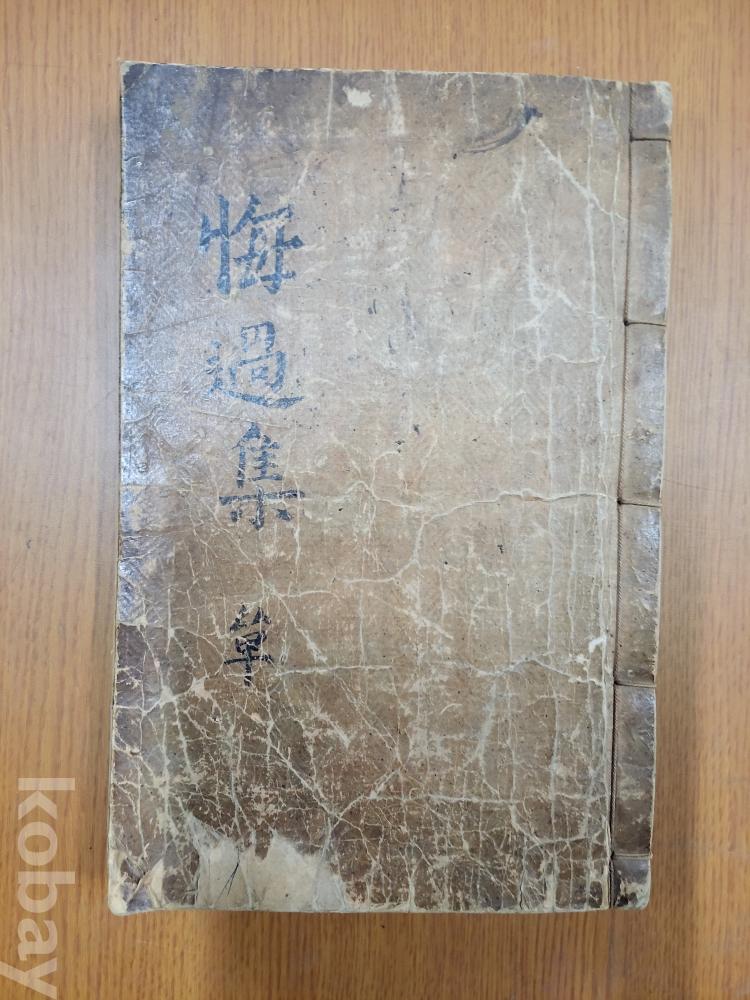 悔過集 單
kobay